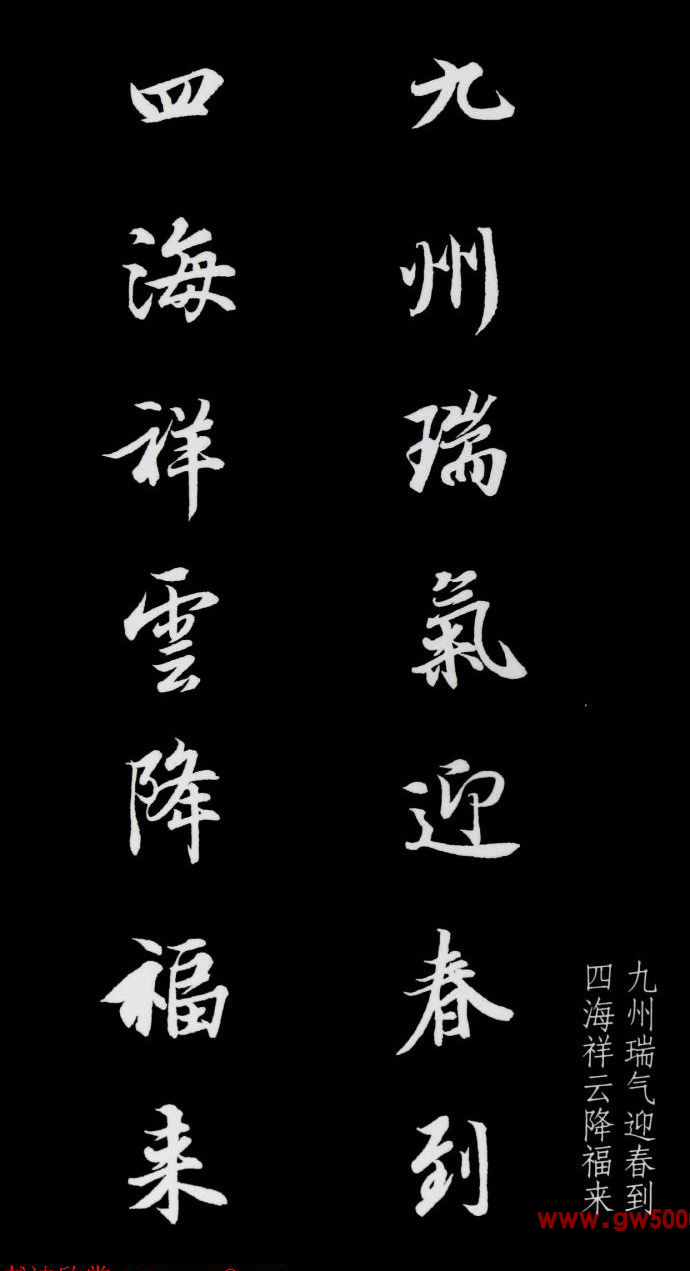 九州瑞氣迎春到
四海祥雲降福来
九州瑞气迎春到
四海祥云降福来
www.gw500